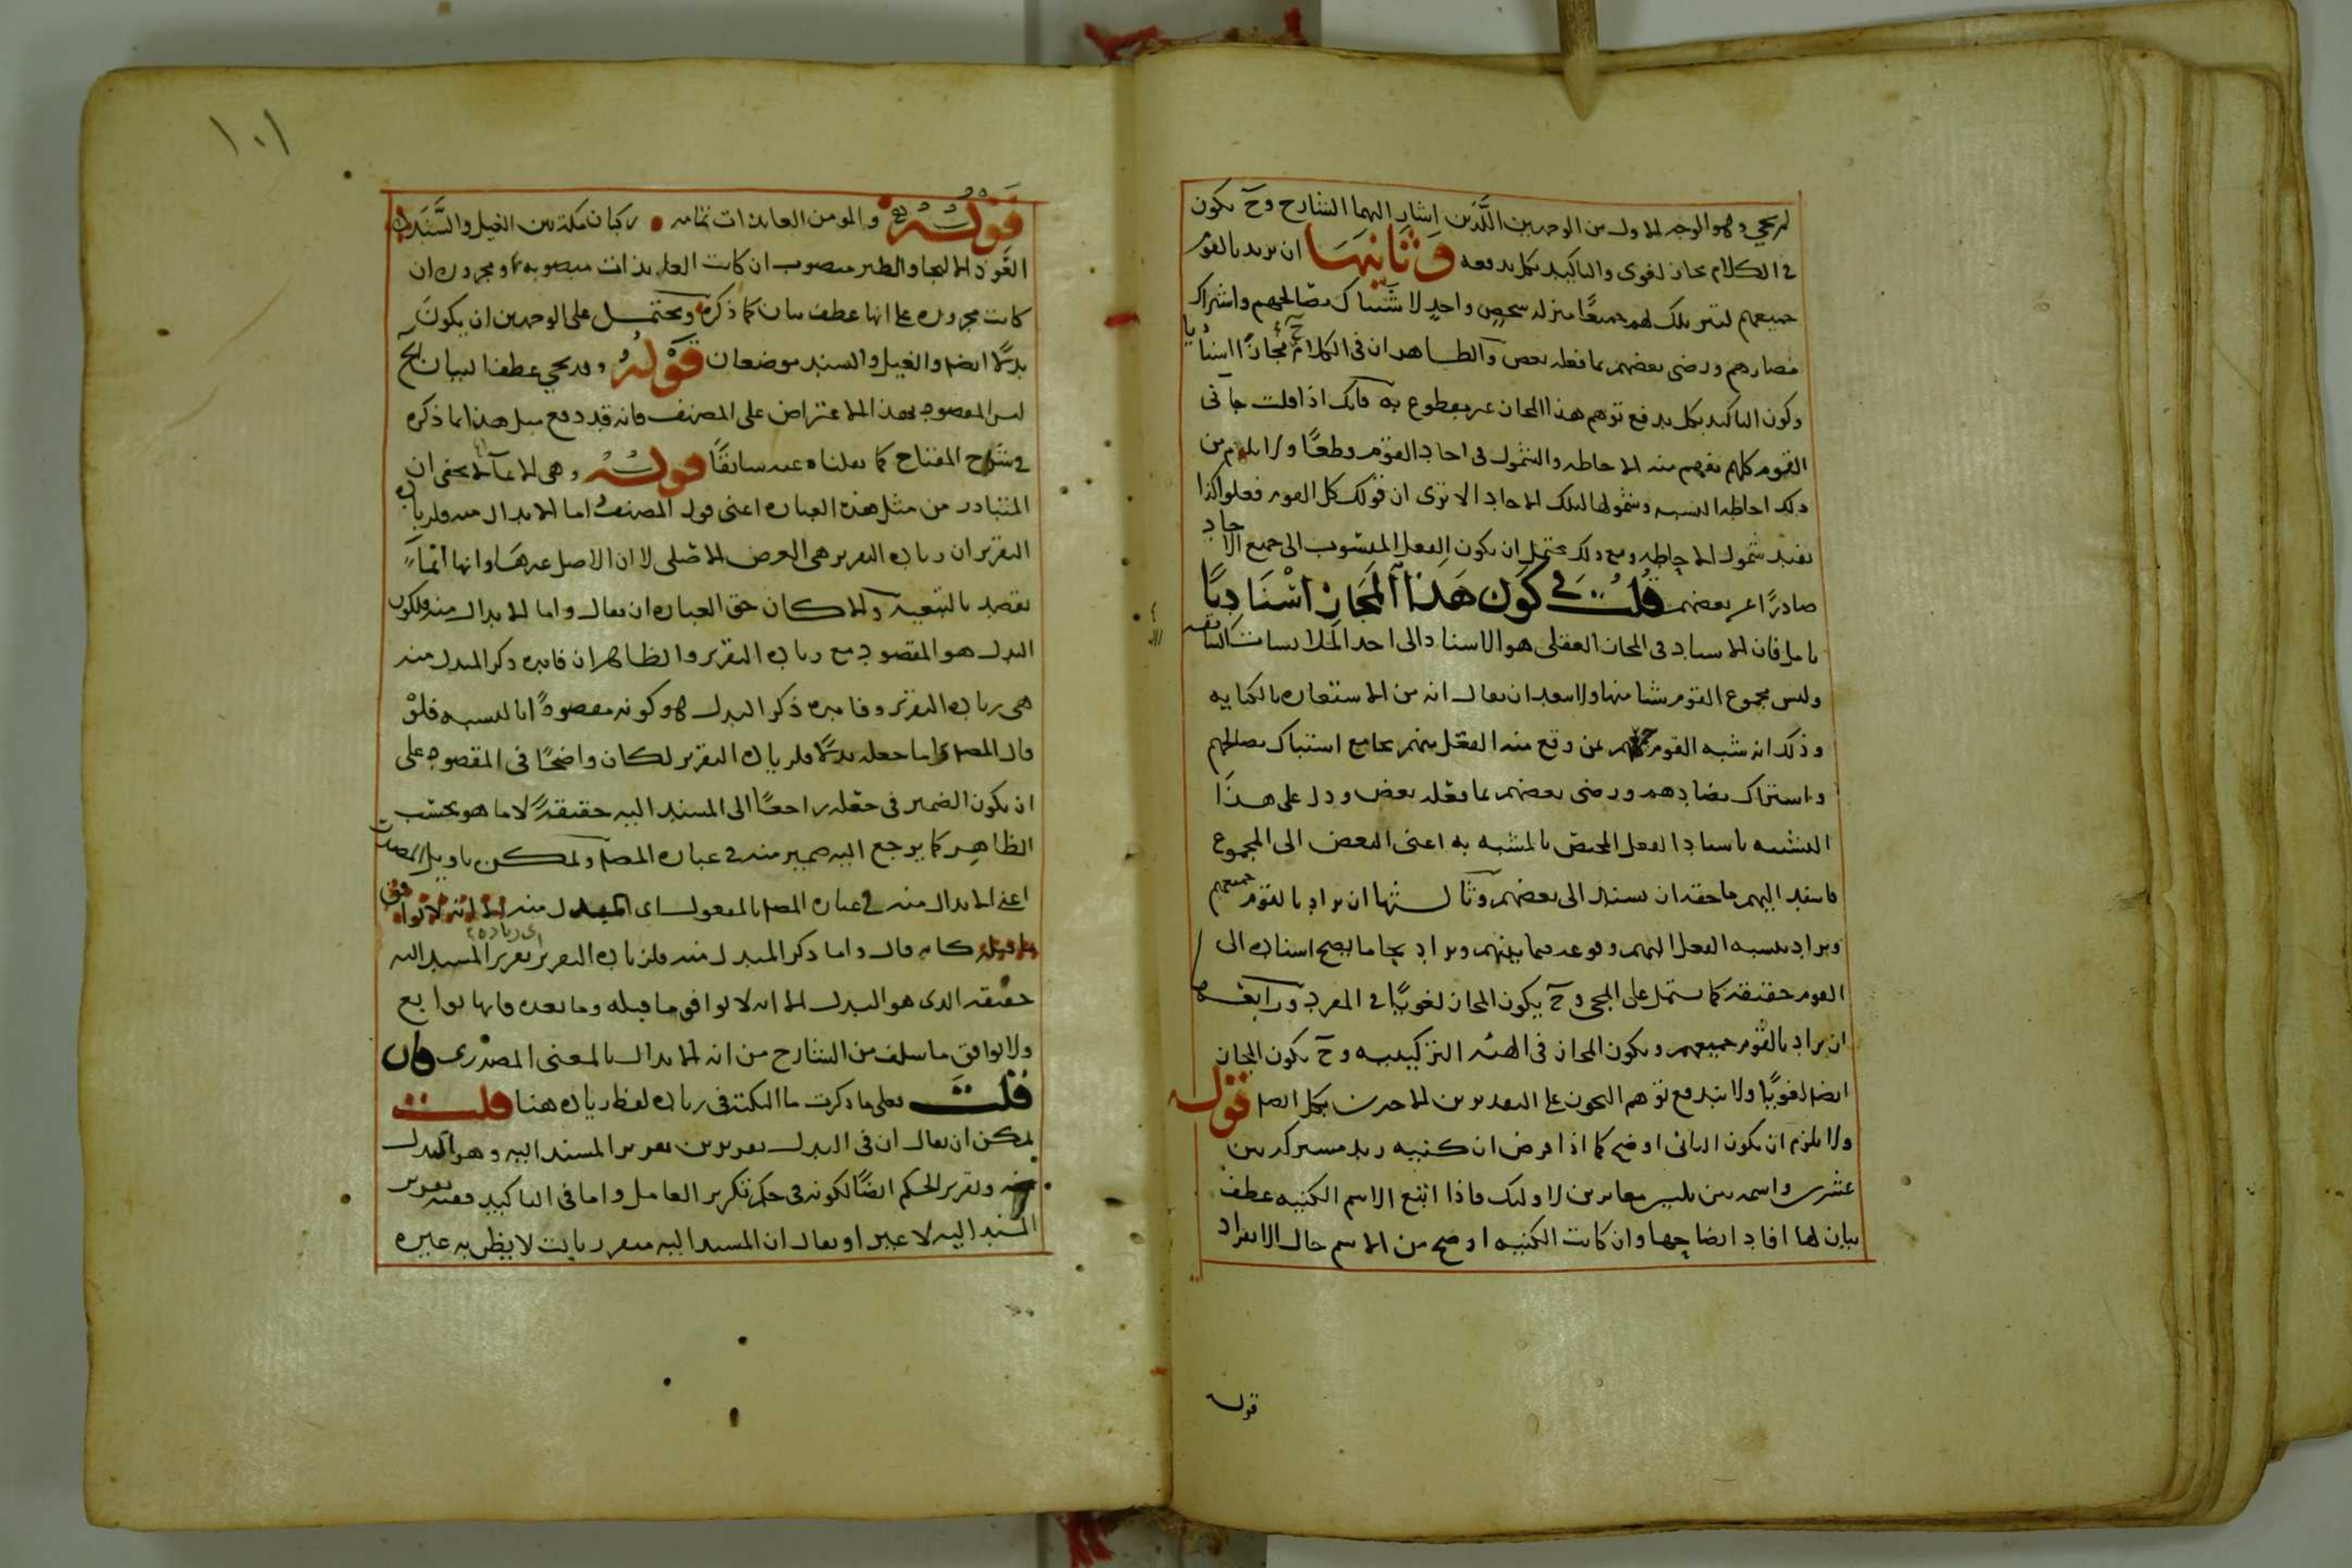 لم يجي وهو الوجه الاول من الوجهين اللذين اشار اليهما الشارح وح يكون
في الكلام مجاز لغوى والتاكيد بكل يدفعه وثانيها ان يريد بالقوم
جميعهم لتنزيلك لهم جميعًا منزله شخص واحد لاشتباك مصالحهم واشتراك
مضارهم ورضى بعضهم بما فعله بعض والظاهر ان في الكلام ح مجازًا اسناديا
وكون التاكيد بكل يدفع توهم هذا المجاز غير مقطوع به فانك اذا قلت جاءنى
القوم كلهم يفهم منه الاحاطه والشمول في احاد القوم قطعًا ولا يلزم من
ذلك احاطه النسبه وشمولها لتلك الاحاد الا ترى ان قولك كل القوم فعلوا كذا
يفيد شمول الاحاطه ومع ذلك يحتمل ان يكون الفعل المنسوب الى جميع الاحاد
صادرًا عن بعضهم قلت في كون هذا المجاز اسناديًا
تامل فان الاسناد في المجاز العقلى هو الاسناد الى احد الملابسات السابقه
وليس مجموع القوم شيا منها ولا يبعد ان يقال انه من الاستعاره بالكنايه
وذلك انه شبه القوم جميعهم بمن وقع منه الفعل منهم بجامع اشتباك مصالحهم
واشتراك مضادهم ورضى بعضهم بما فعله بعض ودل على هذا
التشبيه باسناد الفعل المختص بالمشبه به اعنى البعض الى المجموع
فاسند اليهم ما حقه ان يسند الى بعضهم وثالثها ان يراد بالقوم جميعهم
ويراد بنسبه الفعل اليهم وقوعه فيما بينهم ويراد بجا ما يصح اسناده الى
القوم حقيقة كاشتمل على المجى وح يكون المجاز لغويًا في المفرد ورابعها
ان يراد بالقوم جميعهم ويكون المجاز في الهيئه التركيبيه وح يكون المجاز
ايضا لغويًا ولا يندفع توهم التجوز على التقديرين الاخيرين بكل ايضا قوله
ولا يلزم ان يكون الثانى اوضح كما اذا فرض ان كنيه زيد مشتركه بين
عشره واسمه بين ثلثين مغايرين لاولئك فاذا اتبع الاسم الكنيه عطف
بيان لها افاد ايضاحها وان كانت الكنيه اوضح من الاسم حال الانفراد
قوله
١٠١
قوله والمومن العايذات تمامه ركبان مكة بين الغيل والسند
العوذ الالتجا والطير منصوب ان كانت العايذات منصوبه ومجرور ان
كانت مجروره على انها عطف بيان كما ذكره ويحتمل على الوجهين ان يكون
بدلًا ايضا والغيل والسند موضعان قوله وقد يجي عطف البيان الخ
ليس المقصود بهذا الاعتراض على المصنف فانه قد دفع مثل هذا بما ذكره
في شرح المفتاح كما نقلناه عنه سابقًا قوله وهى الايماء لا يخفى ان
المتبادر من مثل هذه العباره اعنى قول المصنف اما الابدال منه فلزياده
التقرير ان زياده التقرير هى الغرض الاصلى لا ان الاصل غيرها وانها انما
يقصد بالتبعيه والا كان حق العباره ان يقال واما الابدال منه فلكون
البدل هو المقصود مع زياده التقرير والظاهر ان فايده ذكر المبدل منه
هى زياده التقرير وفايده ذكر البدل هو كونه مقصودًا بالنسبه فلو
قال المصنف واما جعله بدلًا فلزياده التقرير لكان واضحًا في المقصود على
ان يكون الضمير في جعله راجعًا الى المسند اليه حقيقة لا ما هو بحسب
الظاهر كما يرجع اليه ضمير منه في عباره المص ولمكن تاويل المصدر
اعنى الابدال منه في عباره المص بالمفعول اى المبدل منه الا انه لا يوافق
ما قبله كانه قال واما ذكر المبدل منه فلزياده التقرير اى زياده تقرير المسند اليه
حقيقه الذى هو البدل الا انه لا يوافق ما قبله وما بعده فانها توابع
ولا يوافق ما سلف من الشارح من انه الابدال بالمعنى المصدرى فان
قلت فعلى ما ذكرت ما النكته في زياده لفظ زياده هنا قلت
يمكن ان يقال ان في البدل تقريرين تقرير المسند اليه وهو المبدل
منه وتقرير الحكم ايضًا لكونه في حكم تكرير العامل واما في التاكيد ففيه تقرير
المسند اليه لا غير او يقال ان المسند اليه متقرر ثابت لا يظن به غيره